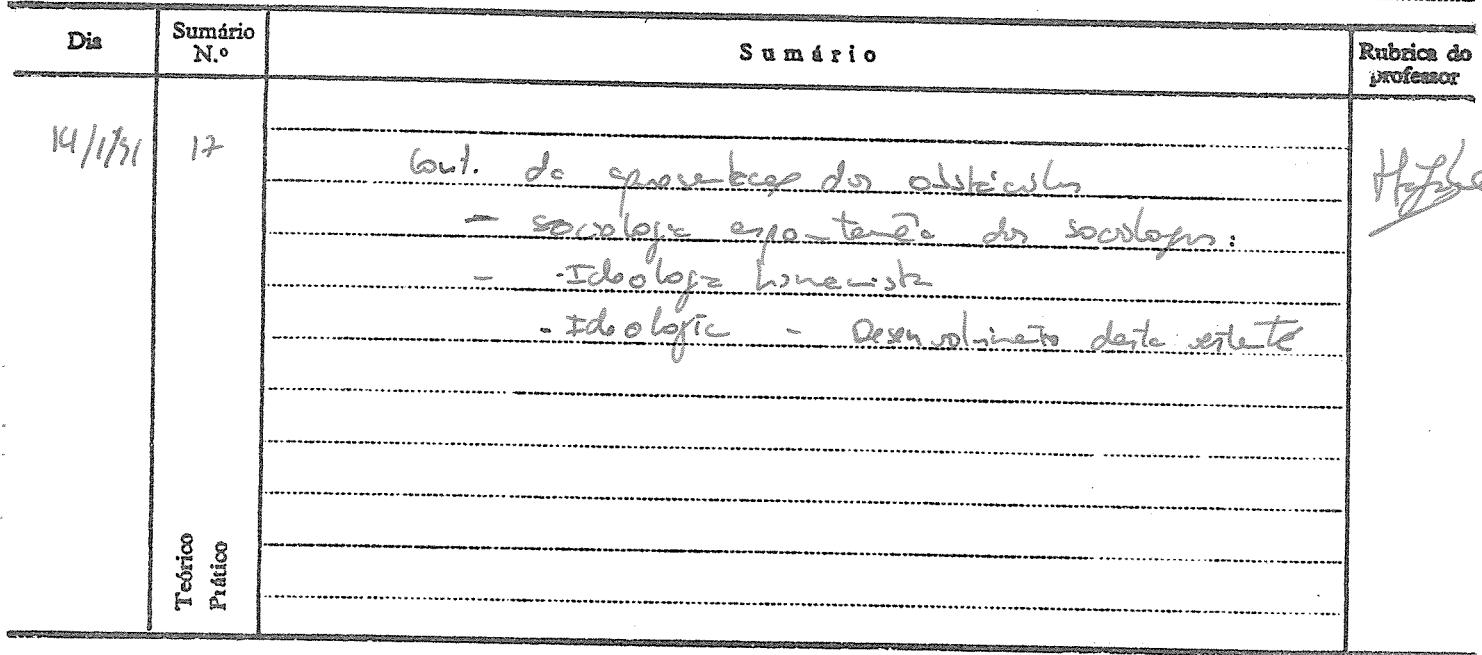 Dia
Sumário N.º
Sumário
Rubrica do professor
14/1/91
17
Cont. da apresentação dos obstáculos
- sociologia espontânea dos sociólogos:
- . Ideologia humanista
. Ideologia - Desenvolvimento desta vertente
Teórico
Prático